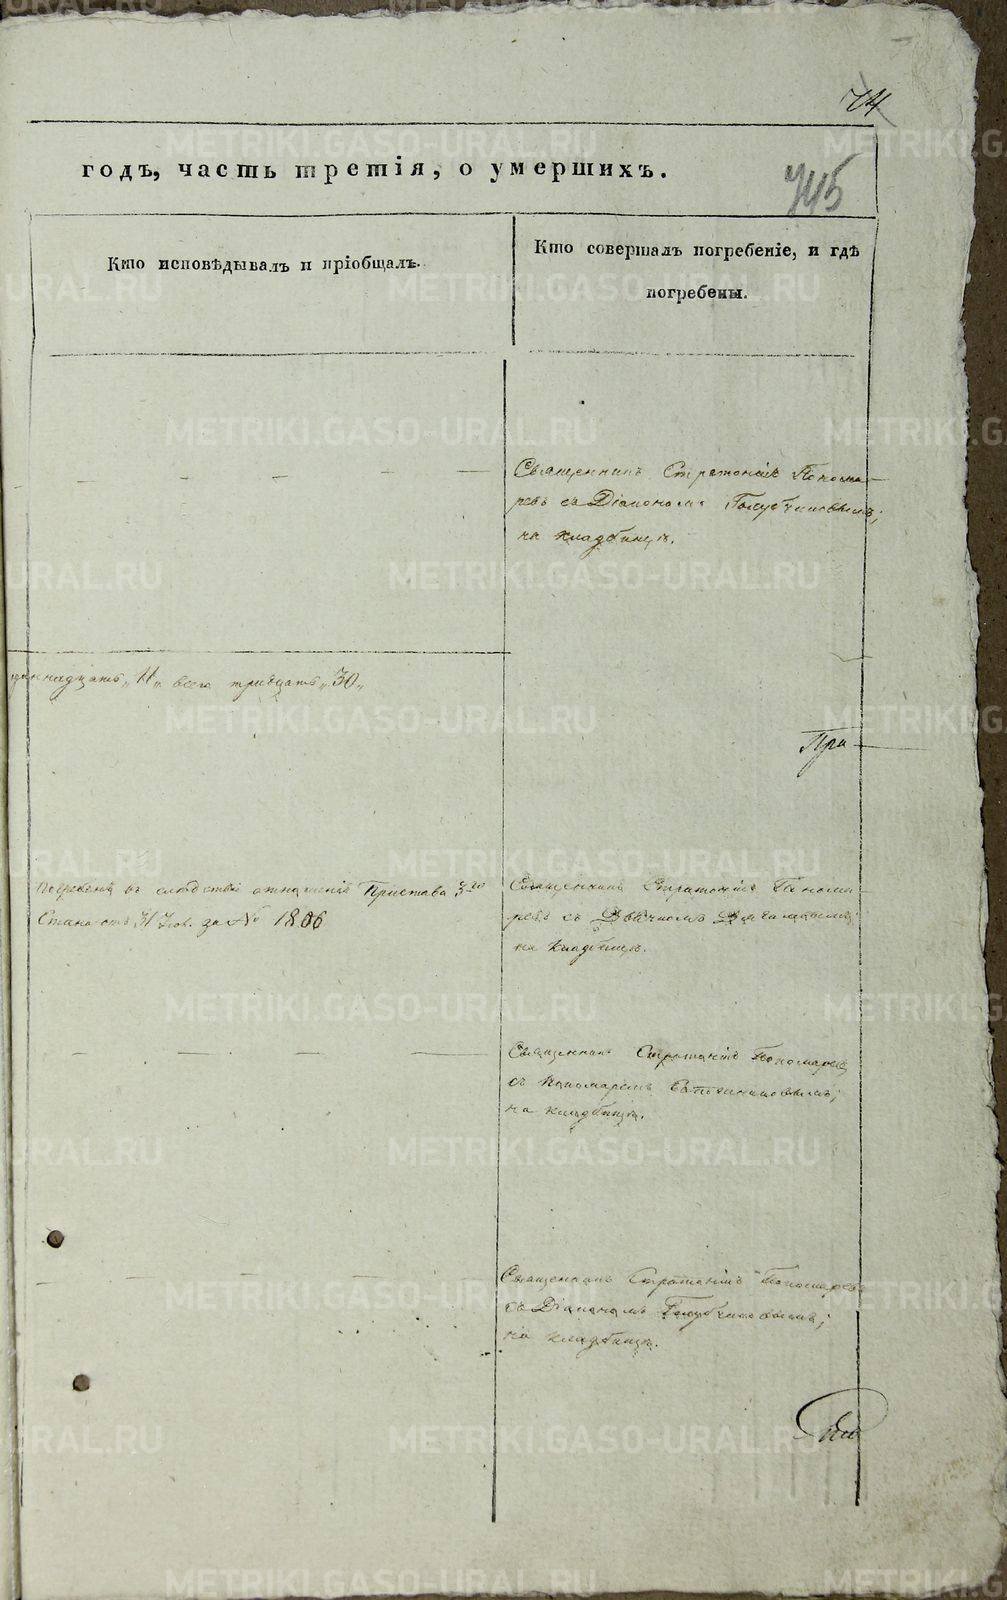 74
годъ, часть третія, о умершихъ.
745
Кто исповѣдывалъ и пріобщалъ.
Кто совершалъ погребеніе, и гдѣ
погребены.
Священникъ Стратоникъ Понома-
ревъ съ Діакономъ Голубчиковымъ;
на кладбищѣ.
надцать „11„ всего тридцать „30„
При-
Погребенъ в слѣдствіе отношенія Пристава 3го
Стана отъ 31 за № 1806
Священникъ Стратоникъ Понома-
ревъ съ Дьячкомъ
на кладбищѣ.
Священникъ Стратоникъ Пономаревъ
съ Пономаремъ
на кладбищѣ.
Священникъ Стратоникъ Пономаревъ
съ Діакономъ Голубчиковымъ;
на кладбищѣ.
METRIKI.GASO-URAL.RU